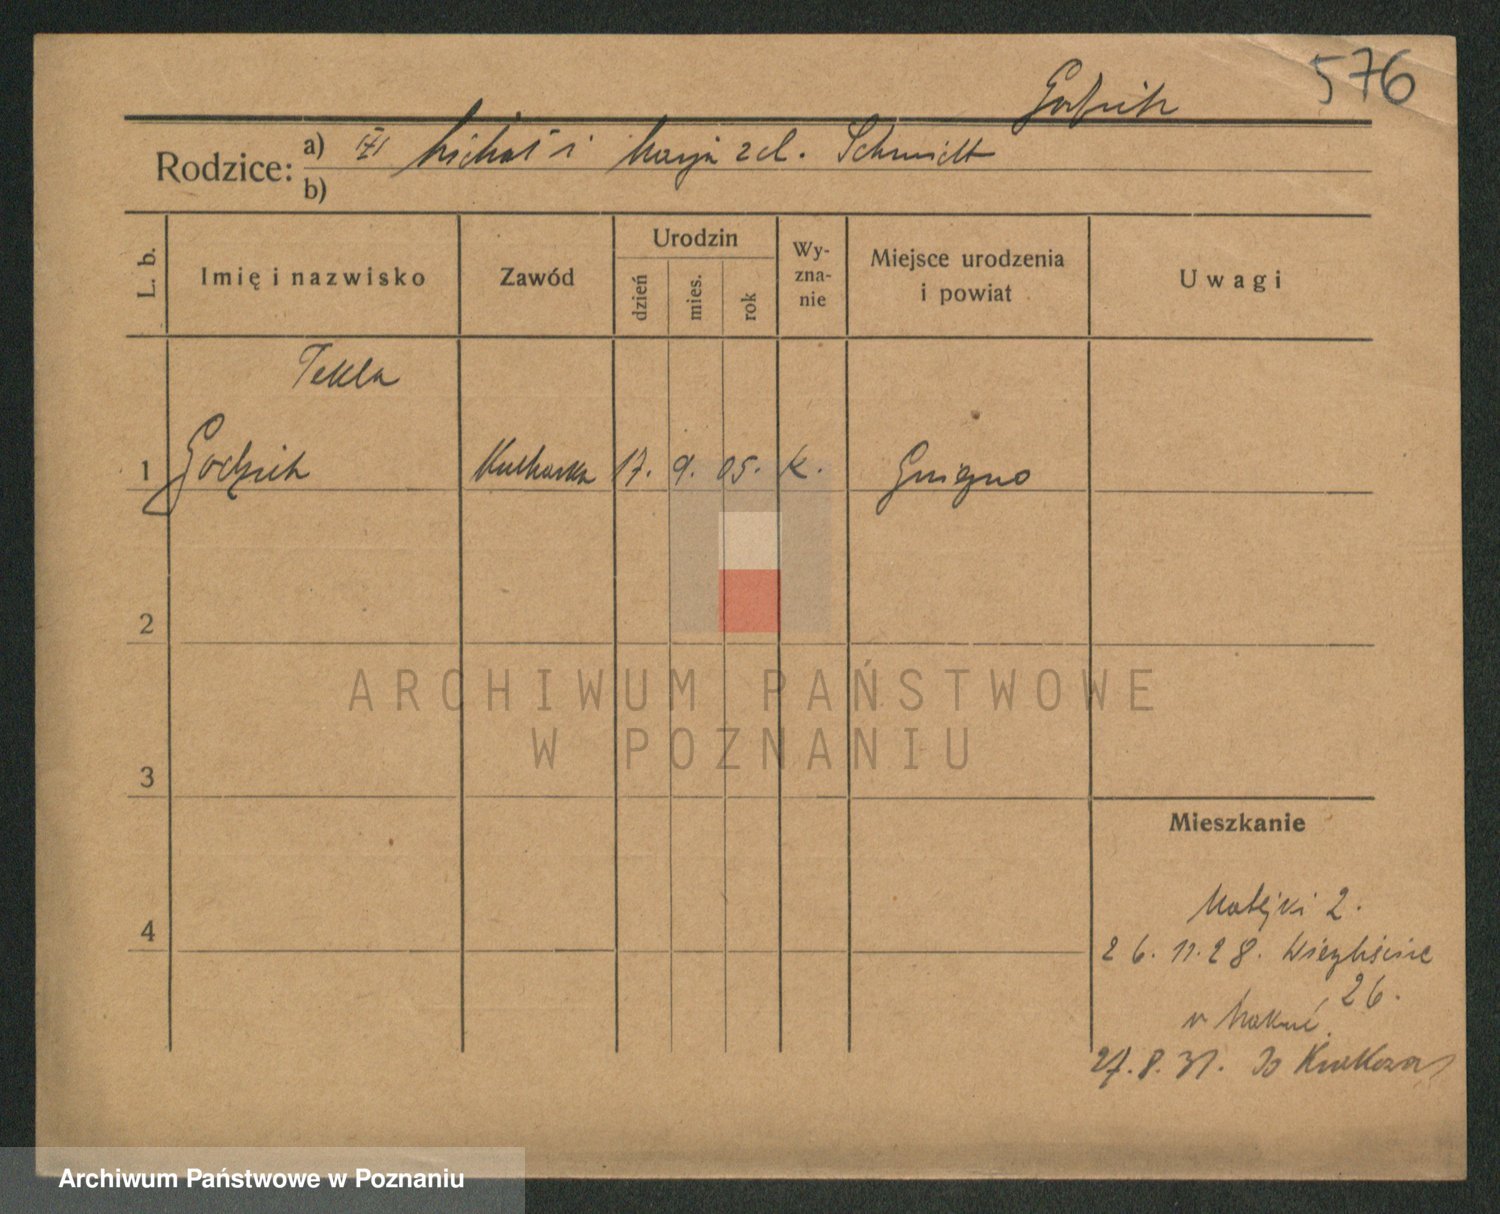 576
Godzik
Rodzice: a) Michał i Marja zd. Schmidt
b)
L. b.
Imię i nazwisko
Zawód
Urodzin
dzień
mies.
rok
Wy-
zna-
nie
Miejsce urodzenia
i powiat
Uwagi
Tekla
1 Godzik Kucharka 17. 9. 05. K. Gniezno
2
3
4
ARCHIWUM PAŃSTWOWE
W POZNANIU
Mieszkanie
Matejki 2.
26. 11. 28.
26.
27. 8. 31. Do Krakowa
Archiwum Państwowe w Poznaniu